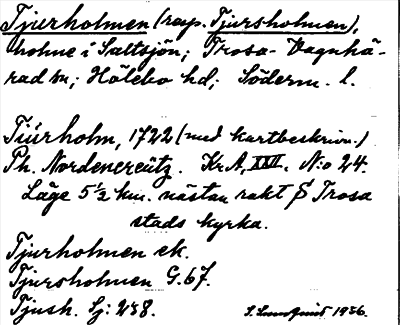 Tjurholmen (resp. Tjursholmen),
holme i Saltsjön; Trosa-Vagnhä-
rad sn; Hölebo hd; Söderm. l.
Tiúrholm, 1722 (med kartbeskrivn.)
Ph. Nordencreütz. Kr.A, XXII. N:o 24.
Läge 5½ km. nästan rakt S Trosa
stads kyrka.
Tjurholmen ek.
Tjursholmen G.67.
Tjush. Lj: 258.
S. Lundquist 1936.